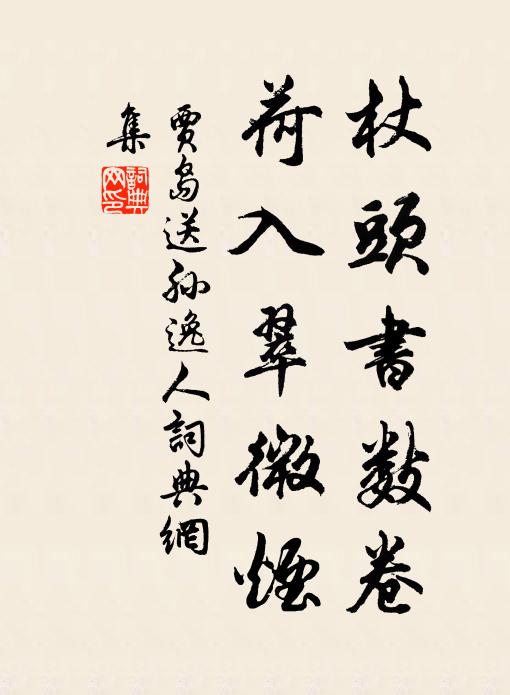 杖頭書數卷
荷入翠微煙
賈島送孙逸人詞典網
集
詞典網印